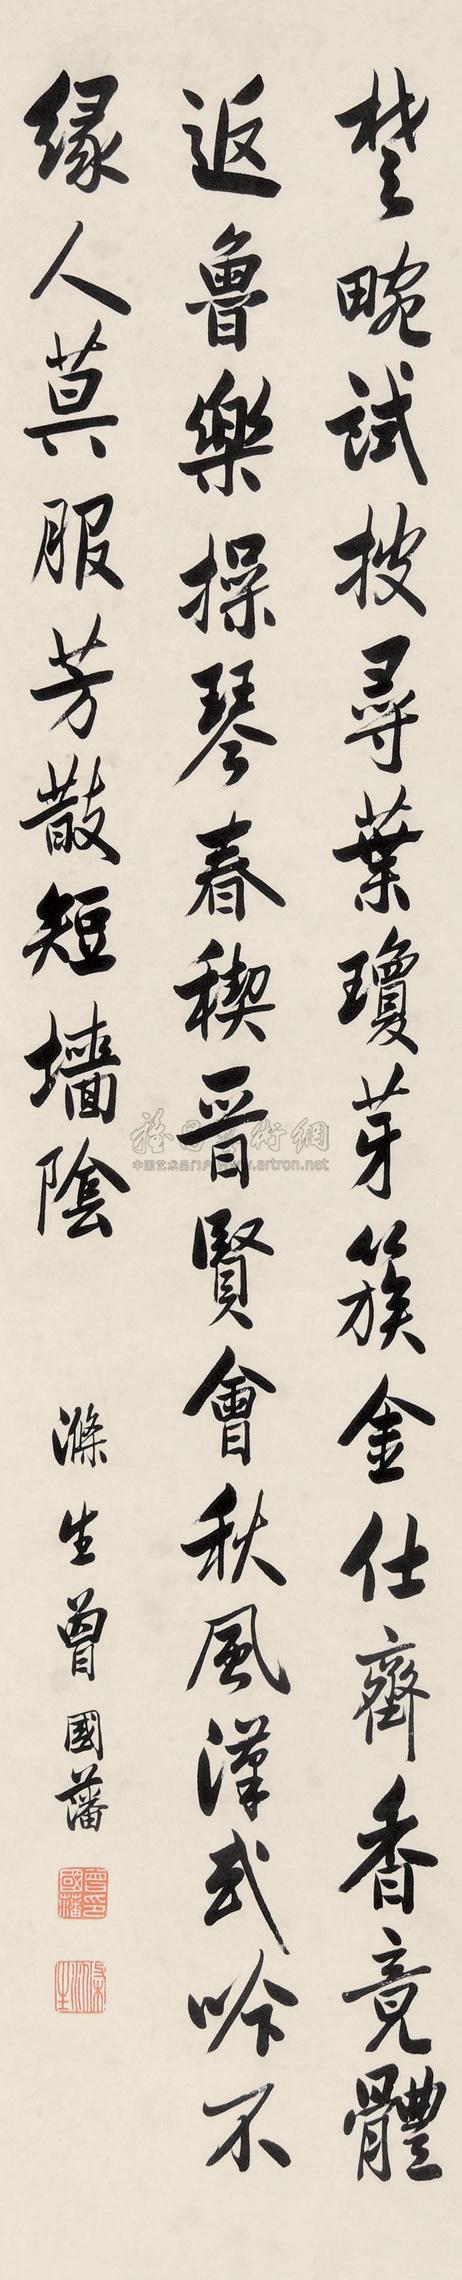 楚畹試披尋葉瓊芽簇金仕齊香竟體
返魯樂操琴春稧晉賢會秋風漢武吟不
緣人莫服芳散短墻陰
滌生曾國藩
曾國藩印
滌生
雅昌藝術網
中国艺术品门户 www.artron.net